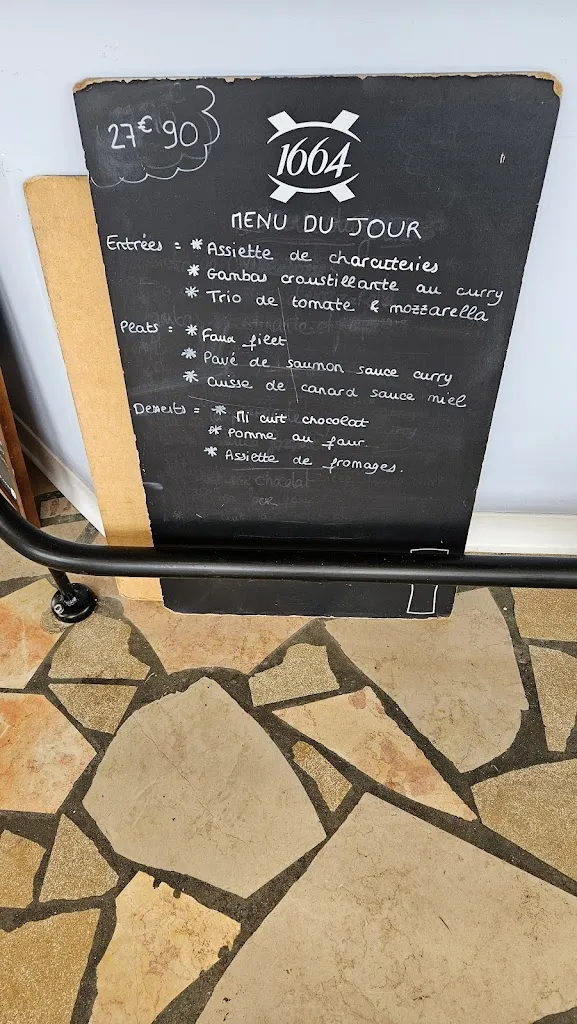 27€90
1664
MENU DU JOUR
Entrées = * Assiette de charcuteries
* Gambas croustillante au curry
* Trio de tomate & mozzarella
Plats = * Faux filet
* Pavé de saumon sauce curry
* Cuisse de canard sauce miel
Desserts = * Mi cuit chocolat
* Pomme au four
* Assiette de fromages.